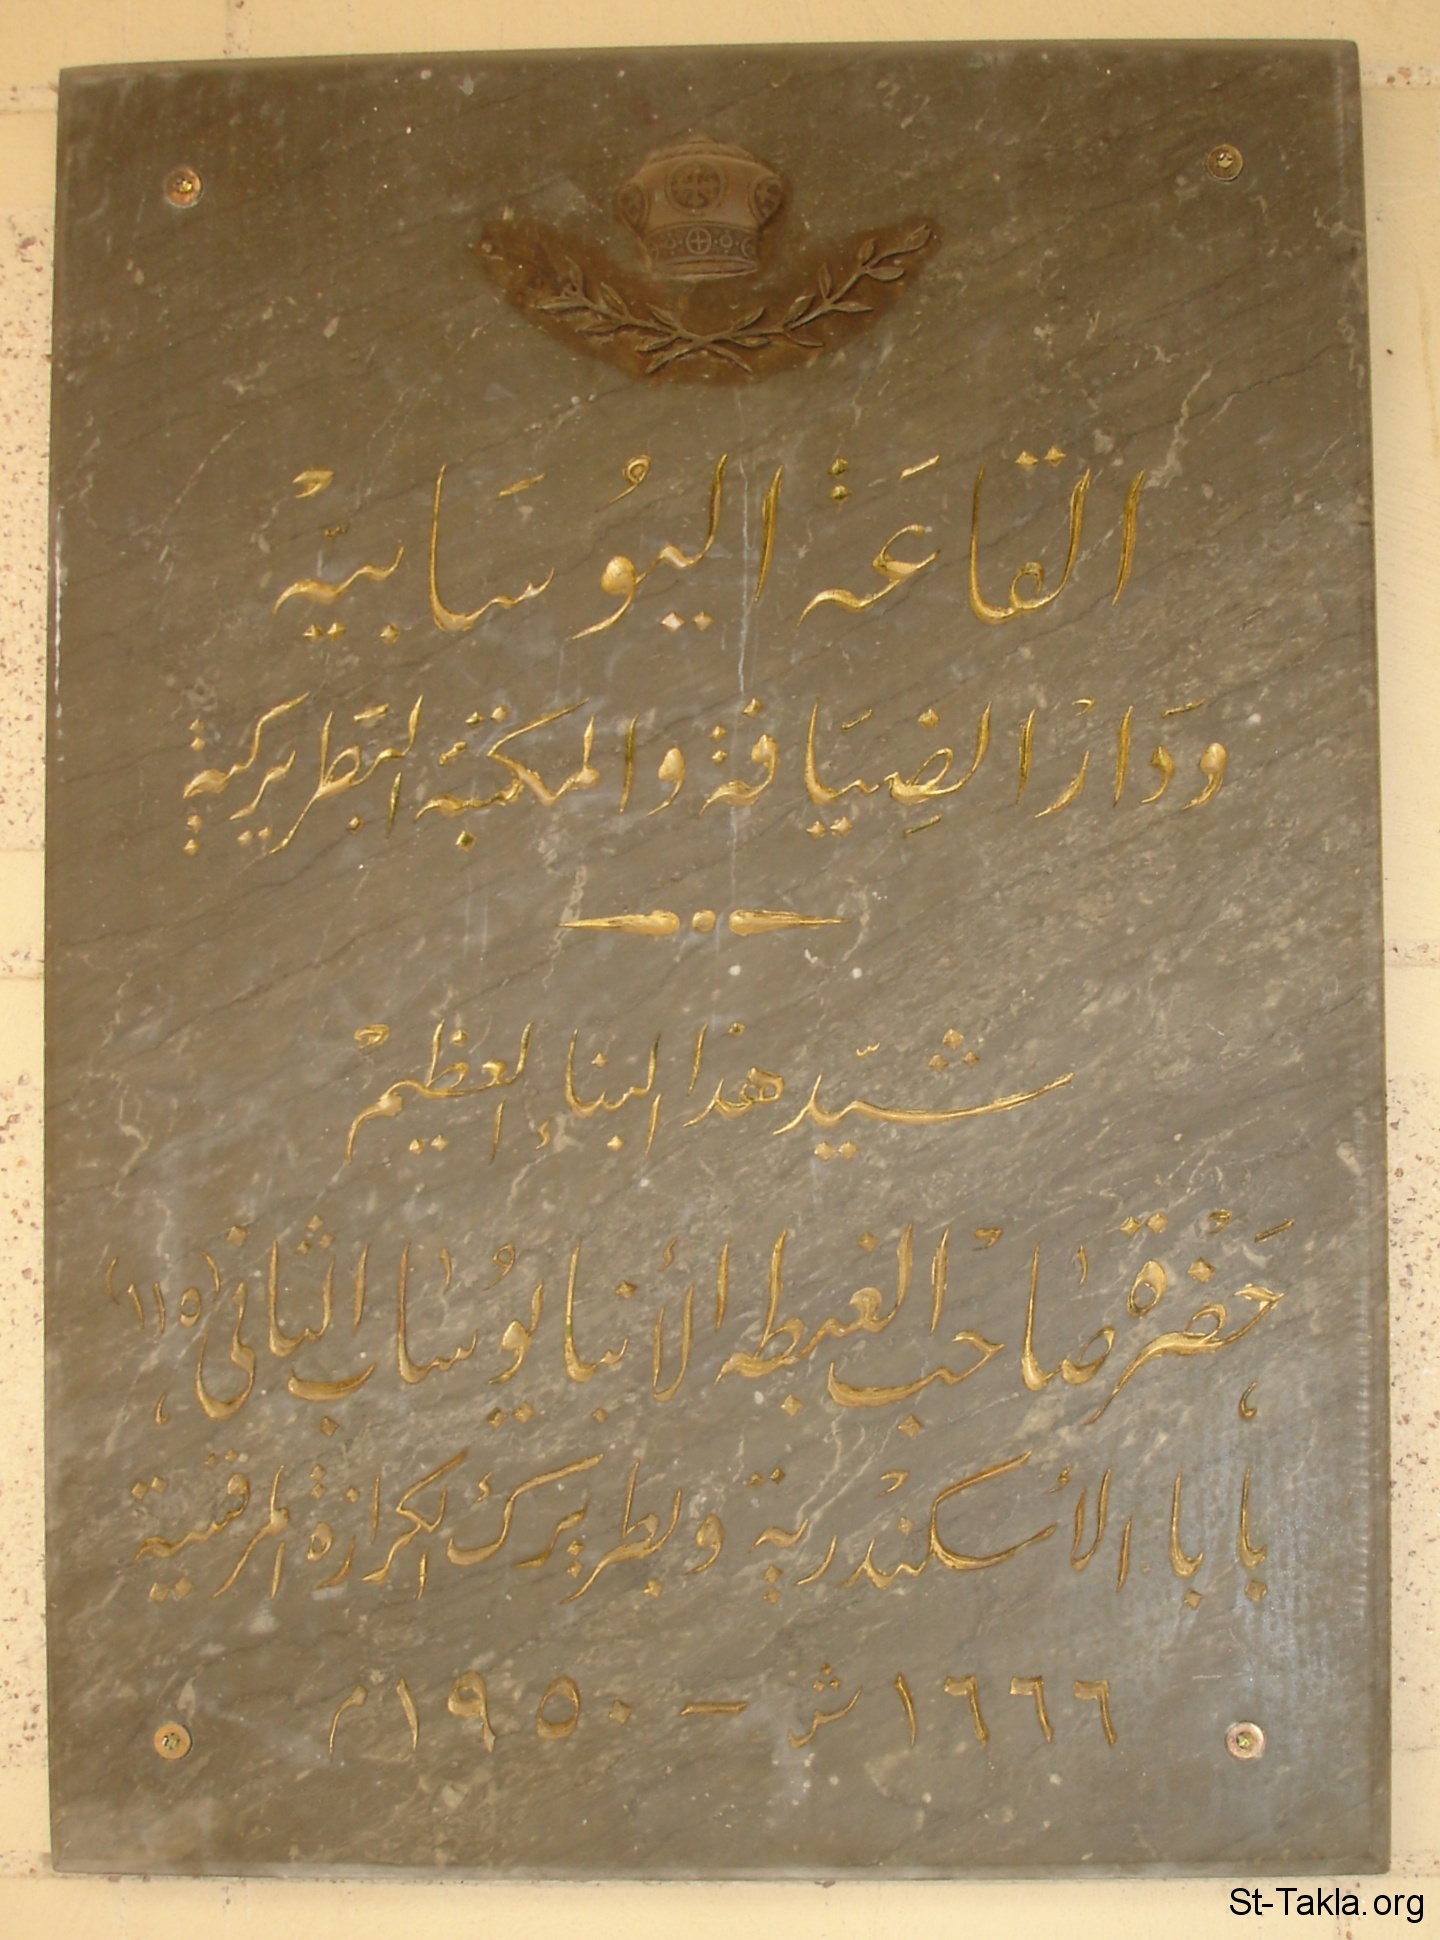 القاعَة اليُوسَابيّة
ودَار الضِيَافة والمكتبة البَطريركية
شيّد هذا البناء العظيم
حَضْرة صاحب الغبطه الأنبا يوُساب الثانى (١١٥)
بابا الأسكندرية وبطريرك الكرازة المرقسية
١٦٦٦ ش - ١٩٥٠ م
St-Takla.org